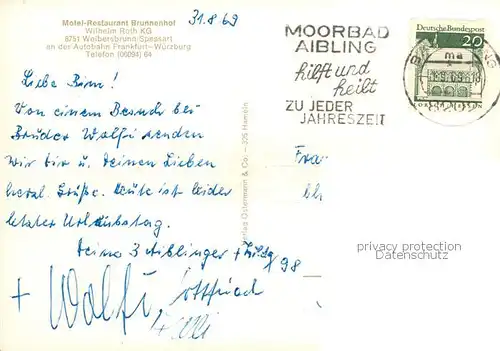 Motel-Restaurant Brunnenhof
Wilhelm Roth KG
8751 Weibersbrunn-Spessart
an der Autobahn Frankfurt-Würzburg
Telefon (06094) 64
31.8.69
MOORBAD
AIBLING
hilft und
heilt
ZU JEDER
JAHRESZEIT
Deutsche Bundespost
20
ma
LORSCH/HESSEN
Von einem Besuch bei
Bruder Wolfi senden
wir dir u. deinen Lieben
herzl. Grüße. Heute ist leider
letzter Urlaubstag.
Deine 3 Aiblinger +
+ Wolfi
Fra
Verlag Ostermeier & Co. - 325 Hameln
privacy protection
Datenschutz